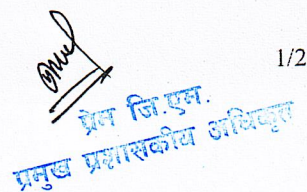 1/2
प्रेल जि.एल.
प्रमुख प्रशासकीय अधिकृत